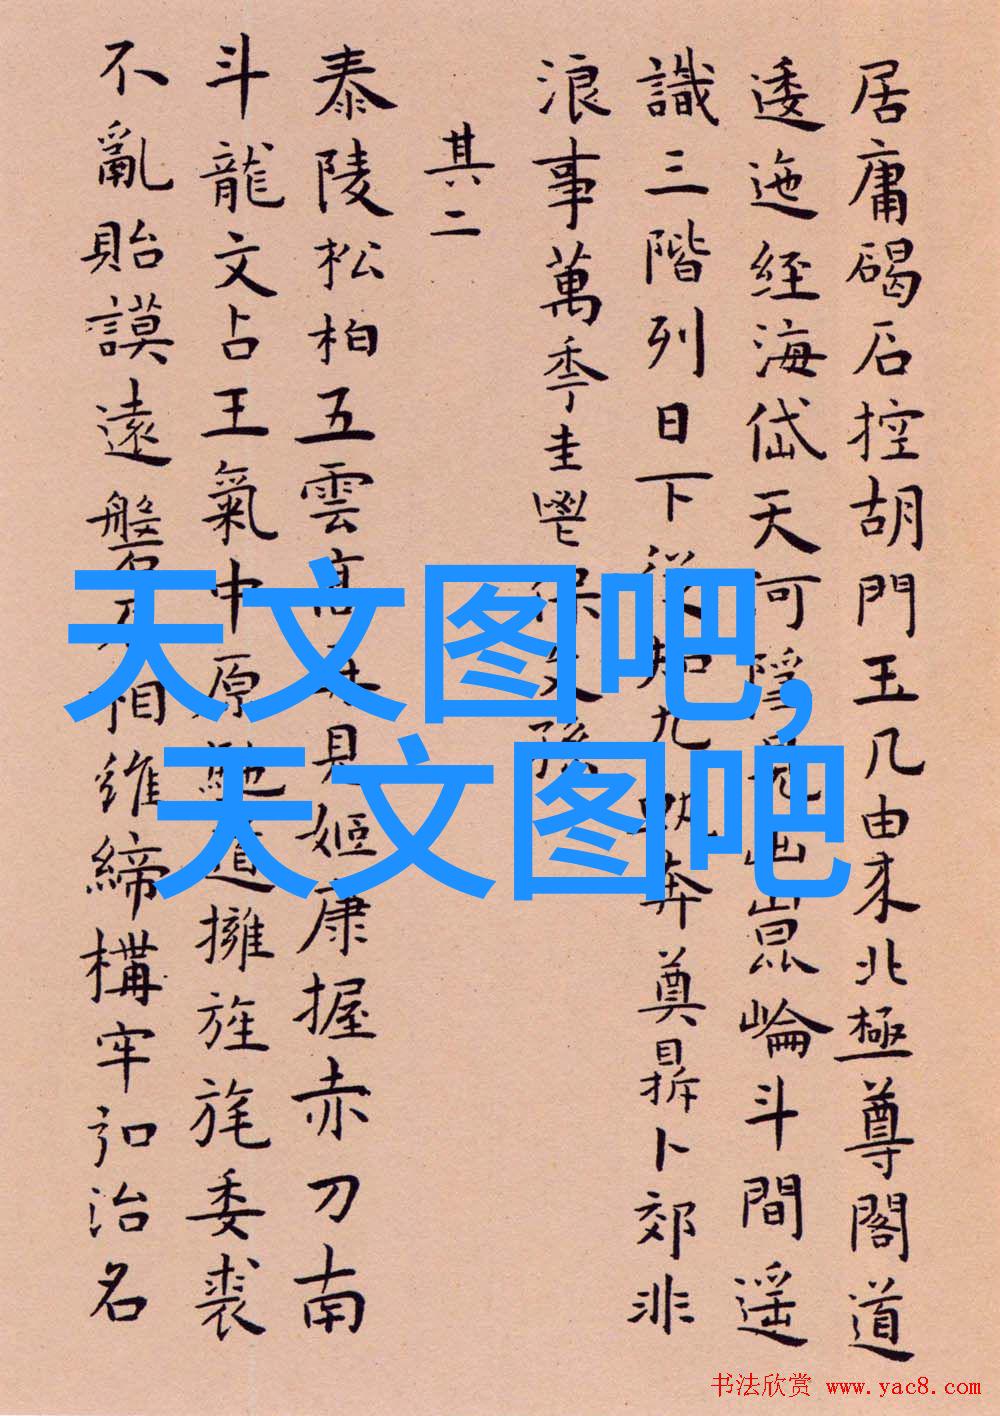 居庸碣石控胡門玉几由来北極尊閣道
逶迤經海岱天河隱見出崑崙斗間遥
識三階列日下從知九奔奠鼎卜郊非
浪事萬季圭鬯保文孫
其二
泰陵松柏五雲高再見姬康握赤刀南
斗龍文占王氣中原馳道擁旌旄委裘
不亂貽謨遠盤相維締構牢弘治名
天文图吧,
天文图吧
书法欣赏 www.yac8.com